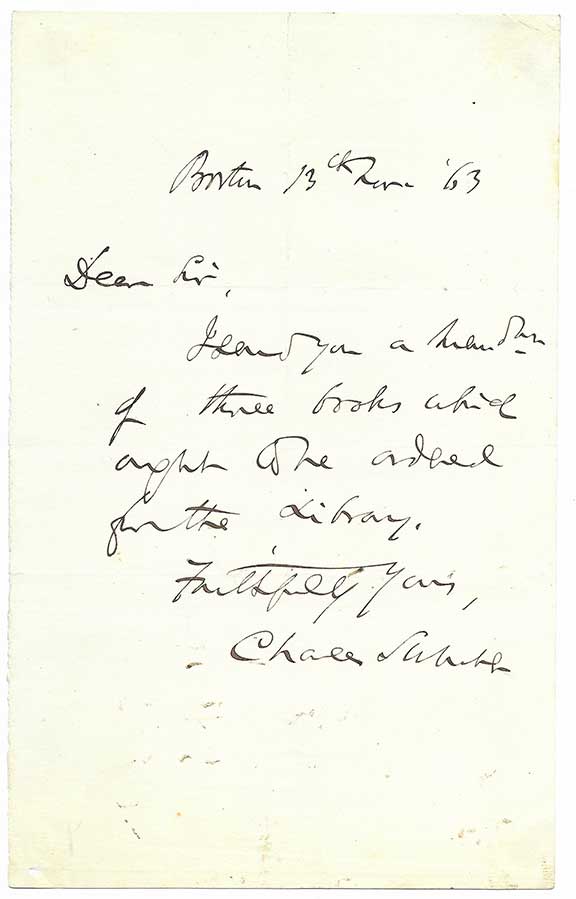 Boston 13th Nov. '63
Dear Sir,
I send you a
of three books which
ought to be ordered
for the Library.
Faithfully Yours,
Charles Sumner